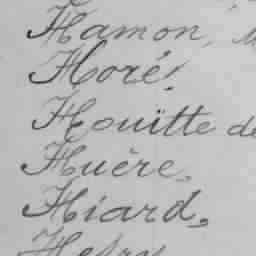 Hamon,
Horé.
Houitte de
Huère,
Hiard,